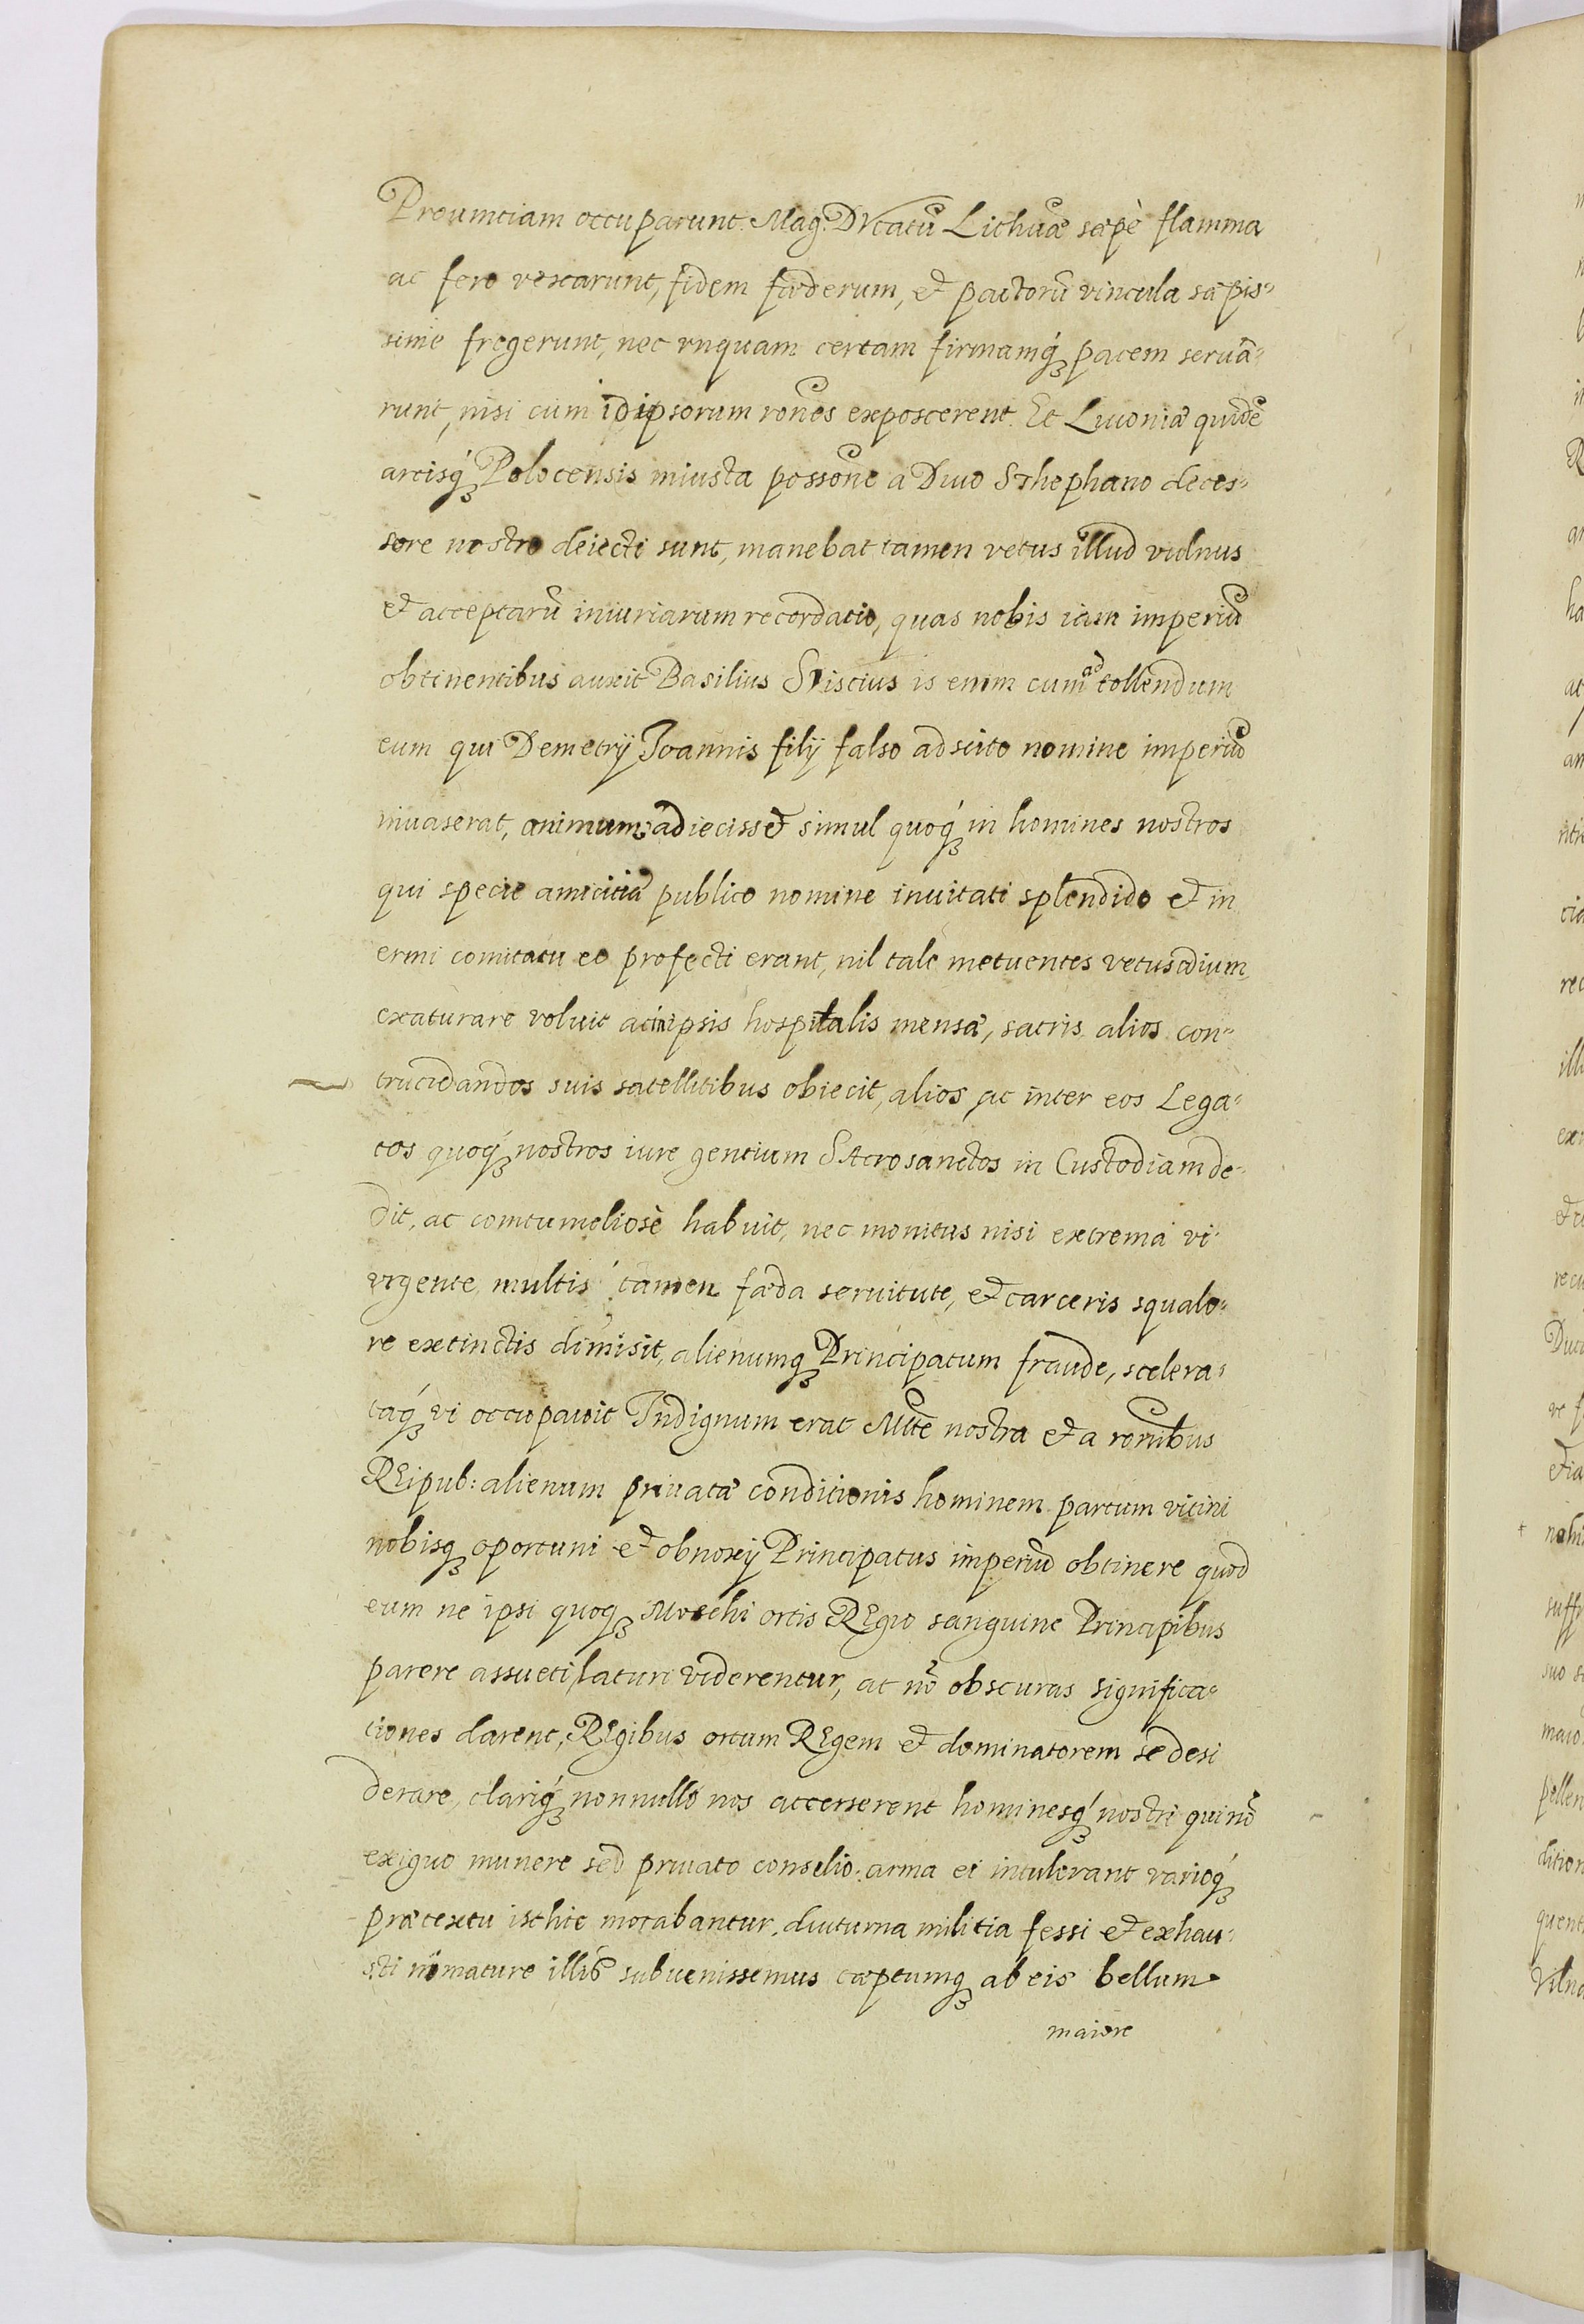 Prouintiam occuparunt. Mag: Dvcatũ Lithuæ sæpè flamma
ac fero vexarunt, fidem fœderum, et pactorũ vincula sæpis-
sime fregerunt, nec vnquam certam firmamq́ꝫ pacem seruâ-
runt, nisi cum id ipsorum rõnes exposcerent. Et Liuoniæ quidẽ
arcisq́ꝫ Polocensis iniusta possõne a Diuo Sthephano deces-
sore nostro deiecti sunt, manebat tamen vetus illud vulnus
et acceptarũ iniuriarum recordatio, quas nobis iam imperiũ
obtinentibus auxit Basilius Suiscius is enim cum ad tollendum
eum qui Demetrij Joannis filij falso adscito nomine imperiũ
inuaserat, animum adiecisset simul quoq́ꝫ in homines nostros
qui specie amicitiæ publico nomine inuitati splendido et in
ermi comitatu eo profecti erant, nil tale metuentes vetus odium
exaturare voluit ac in ipsis hospitalis mensæ, sacris alios con-
trucidandos suis satellitibus obiecit, alios, ac inter eos Lega-
tos quoq́ꝫ nostros iure gentium SAcrosanctos in Custodiam de-
dit, ac comtumeliosè habuit, nec monitus nisi extrema vi
vrgente, multis tamen fœda seruitute, et carceris squalo-
re extinctis dimisit, alienumqꝫ Principatum fraude, scelera-
táq́ꝫ vi occupauit Indignum erat Mtte nostra et a rõnibus
REipub: alienum priuatæ conditionis hominem partum vicini
nobisqꝫ oportuni et obnoxij Principatus imperiũ obtinere quod
eum ne ipsi quoqꝫ Moschi ortis REgio sanguine Principibus
parere assueti laturi viderentur, at nõ obscuras significa-
tiones darent, REgibus ortum REgem et dominatorem se desi
derare, clariq́ꝫ nonnulli nos accerserent hominesq́ꝫ nostri qui nõ
exiguo munere sed priuato consilio arma ei intulerant varioq́ꝫ
prætextu isthic morabantur, diuturna militia fessi et exhau-
sti nimature illis subuenissemus cœptumqꝫ ab eis bellum
maiore